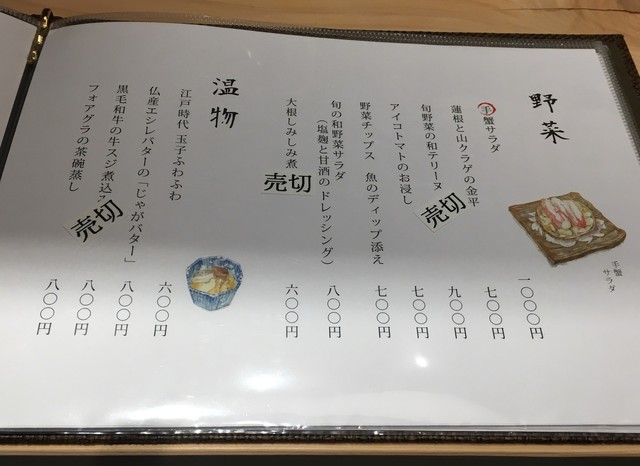 野菜
手 蟹サラダ 一〇〇〇円
蓮根と山クラゲの金平 七〇〇円
旬野菜の和テリーヌ 九〇〇円
売切
アイコトマトのお浸し 七〇〇円
野菜チップス 魚のディップ添え 七〇〇円
旬の和野菜サラダ
(塩麹と甘酒のドレッシング) 八〇〇円
大根しみしみ煮 六〇〇円
売切
手蟹
サラダ
温物
江戸時代 玉子ふわふわ 六〇〇円
仏産エシレバターの「じゃがバター」 八〇〇円
黒毛和牛の牛スジ煮込 八〇〇円
売切
フォアグラの茶碗蒸し 八〇〇円